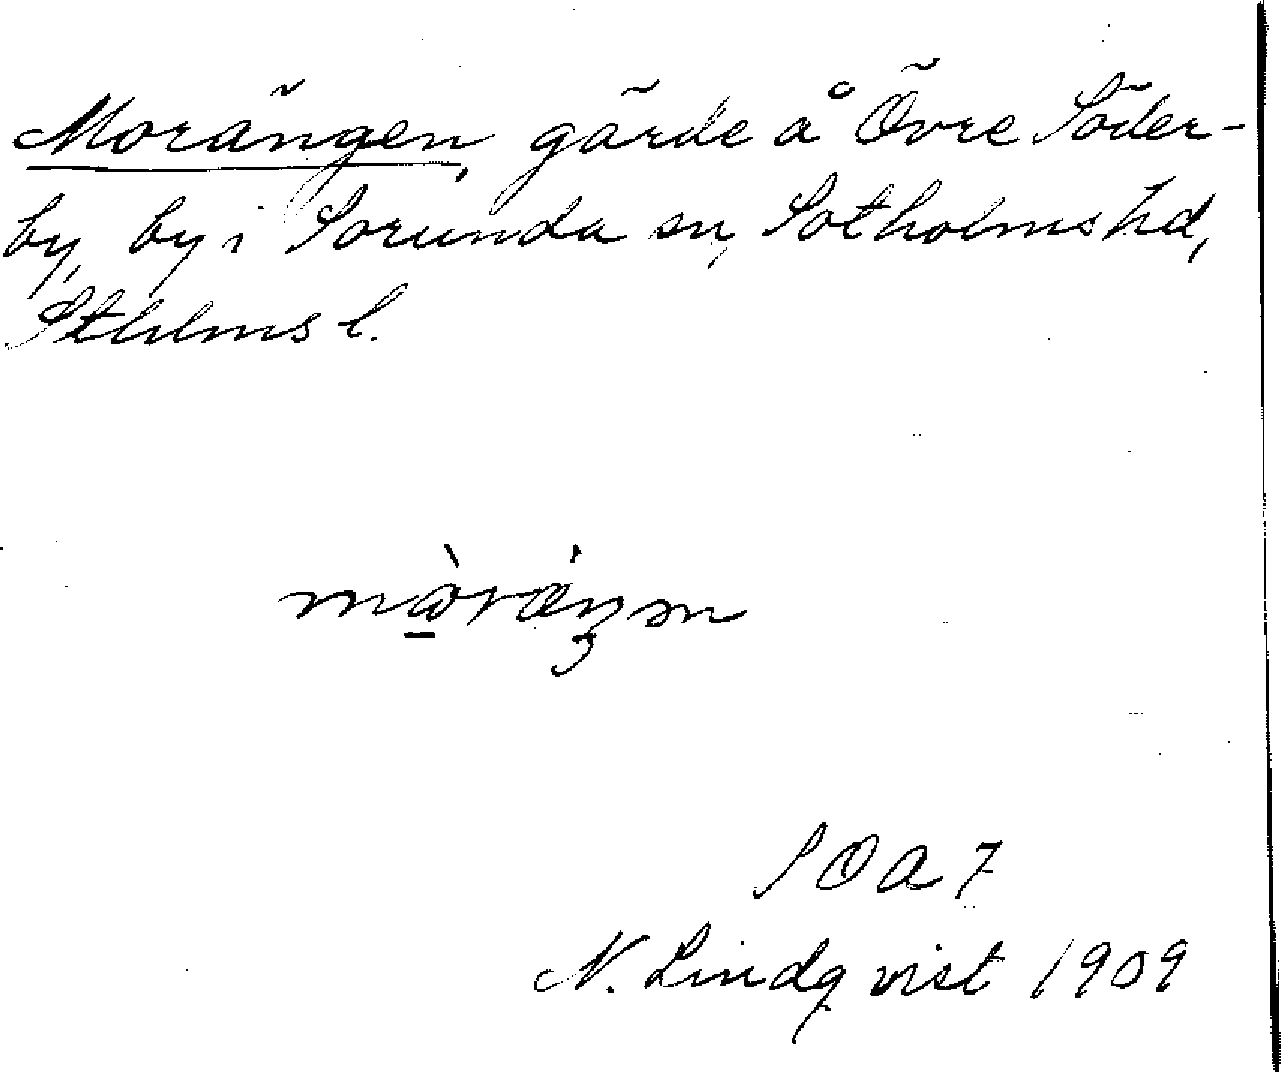 Morängen, gärde å Övre Söder-
by, by i Sorunda sn, Sotholms hd,
Sthlms l.
SOA 7
N. Lindqvist 1909